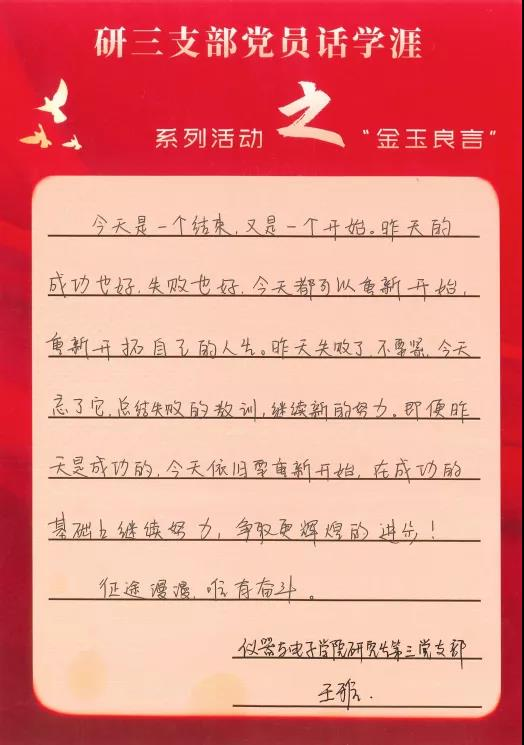 研三支部党员话学涯
系列活动之“金玉良言”
今天是一个结束,又是一个开始。昨天的
成功也好,失败也好,今天都可以重新开始,
重新开拓自己的人生。昨天失败了,不要紧,今天
忘了它,总结失败的教训,继续新的努力。即便昨
天是成功的,今天依旧要重新开始,在成功的
基础上继续努力,争取更辉煌的进步!
征途漫漫,唯有奋斗。
仪器与电子学院研究生第三党支部
王